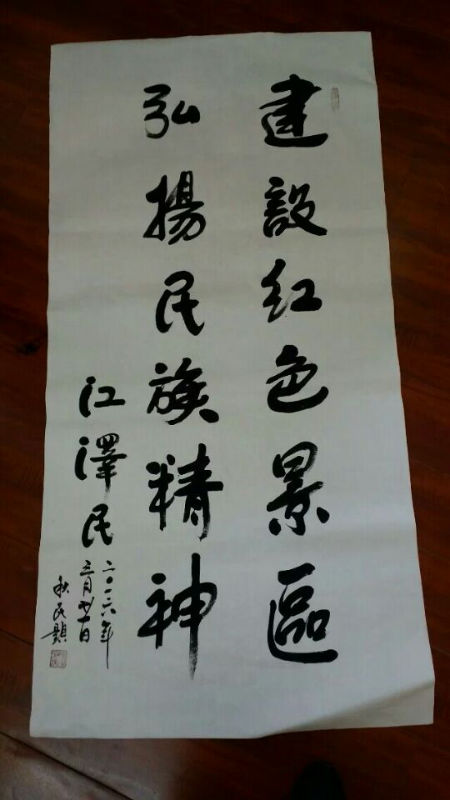 建設红色景區
弘揚民族精神
江澤民
二〇一六年
三月廿一日
秋民題